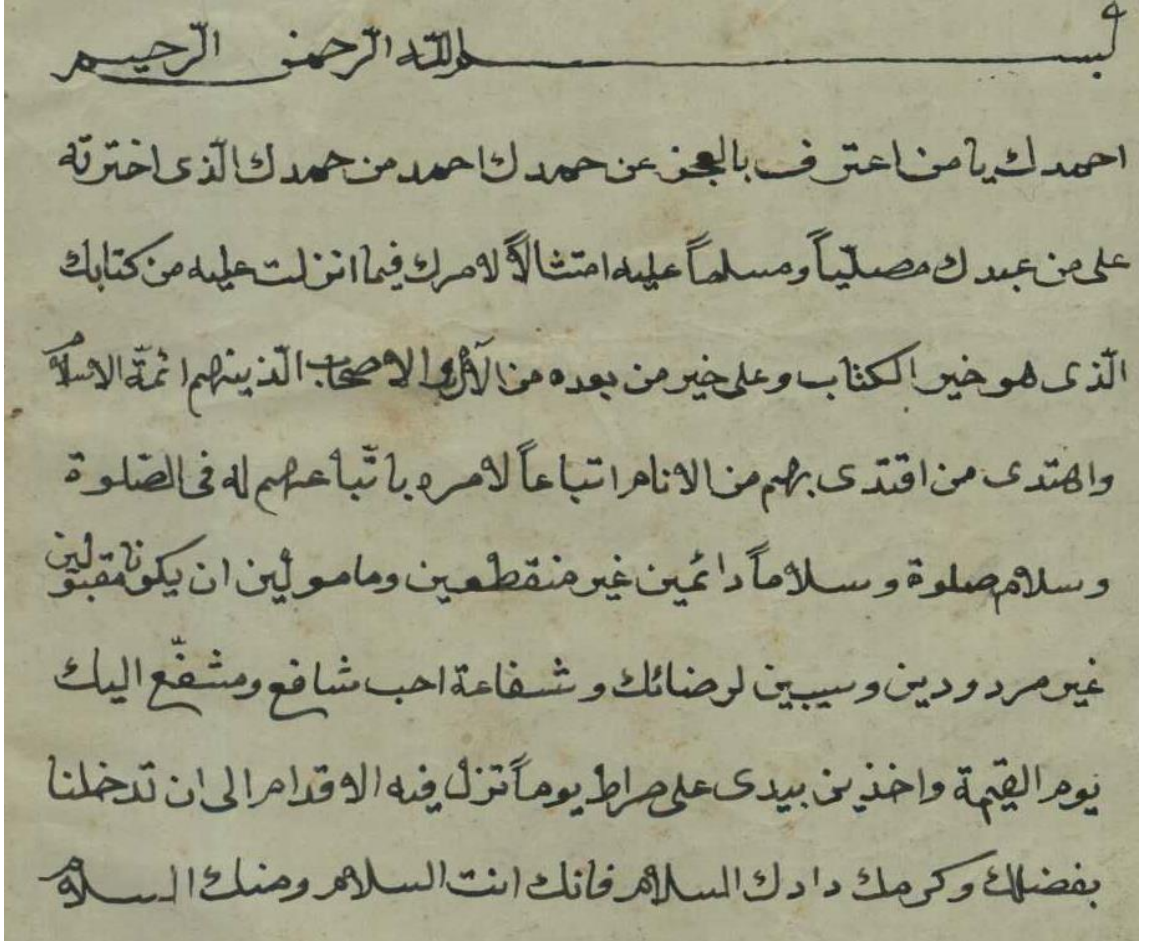 بسم الله الرّحمن الرّحيم
احمدك يا من اعترف بالعجز عن حمدك احمد من حمدك الّذى اخترته
على من عبدك مصلّياً ومسلماً عليه امتثالاً لامرك فيما انزلت عليه من كتابك
الّذى هو خير الكتاب وعلى خير من بعده من الآل والاصحاب الّذينهم ائمّة الاسلام
واهتدى من اقتدى بهم من الانام اتباعاً لامره باتّباعهم له فى الصّلوة
وسلام صلوة وسلاماً دائمين غير منقطعين ومامولين ان يكونا مقبولين
غير مردودين وسببين لرضائك وشفاعة احب شافع ومشفّع اليك
يوم القيمة واخذين بيدى على صراط يوماً تزل فيه الاقدام الى ان تدخلنا
بفضلك وكرمك دادك السلام فانك انت السلام ومنك السلام